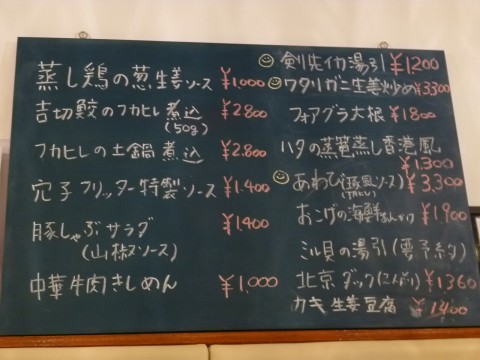 蒸し鶏の葱生姜ソース ¥1,000
吉切鮫のフカヒレ煮込 ¥2800
(50g)
フカヒレの土鍋煮込 ¥2.800
穴子フリッター特製ソース ¥1.400
豚しゃぶサラダ ¥1400
(山椒ソース)
中華牛肉きしめん ¥1,000
剣先イカ湯引 ¥1200
ワタリガニ生姜炒め ¥3300
フォアグラ大根 ¥1800
ハタの蒸篭蒸し香港風
¥1300
あわび(豚風ソース) ¥3,300
おこげの海鮮あんかけ ¥1900
ミル貝の湯引(要予約)
北京ダック ¥1360
カキ生姜豆腐 ¥1400